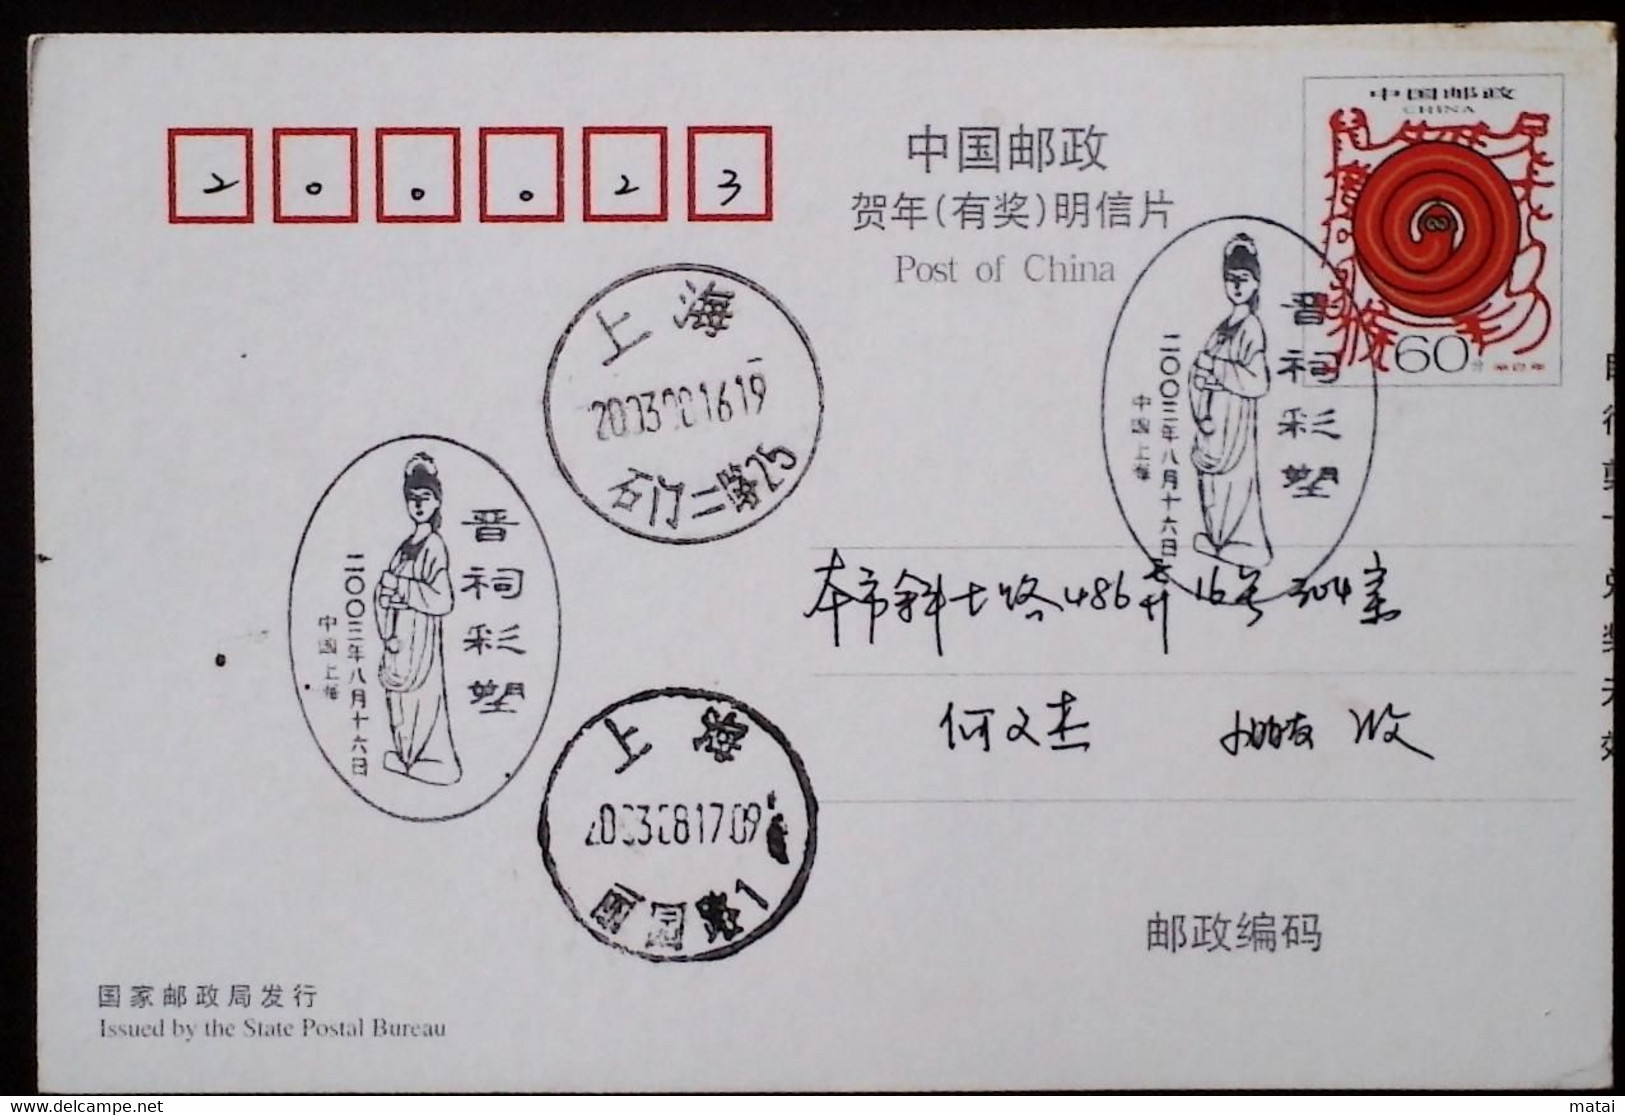 200023
中国邮政
贺年(有奖)明信片
Post of China
中国邮政
CHINA
60分
辛巳年
上海
2003.08.16.19
石门二路25
晋祠彩塑
二〇〇三年八月十六日
中国上海
晋祠彩塑
二〇〇三年八月十六日
中国上海
本市斜土路486弄16号304室
何文杰 小朋友 收
上海
2003.08.17.09
路1
邮政编码
国家邮政局发行
Issued by the State Postal Bureau
matai